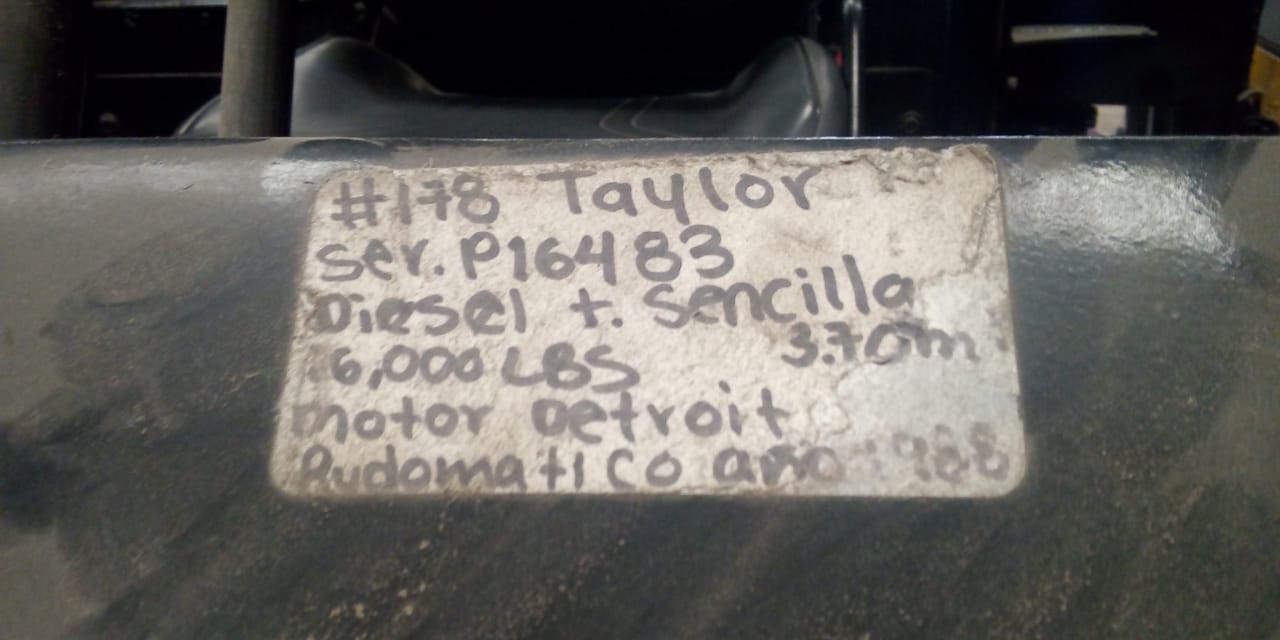 #178 Taylor
ser. P16483
Diesel t. Sencilla
6,000 LBS 3.70m
motor Detroit
Audomatico año 1988